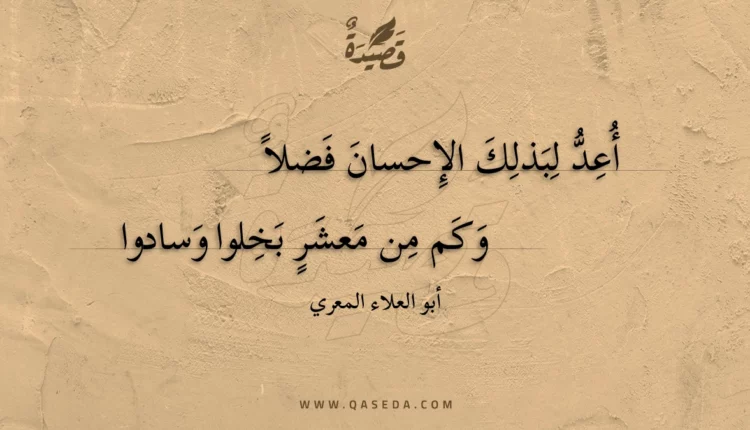 قَصِيْدَةٌ
أُعِدُّ لِبَذلِكَ الإِحسانَ فَضلاً
وَكَم مِن مَعشَرٍ بَخِلوا وَسادوا
أبو العلاء المعري
WWW.QASEDA.COM